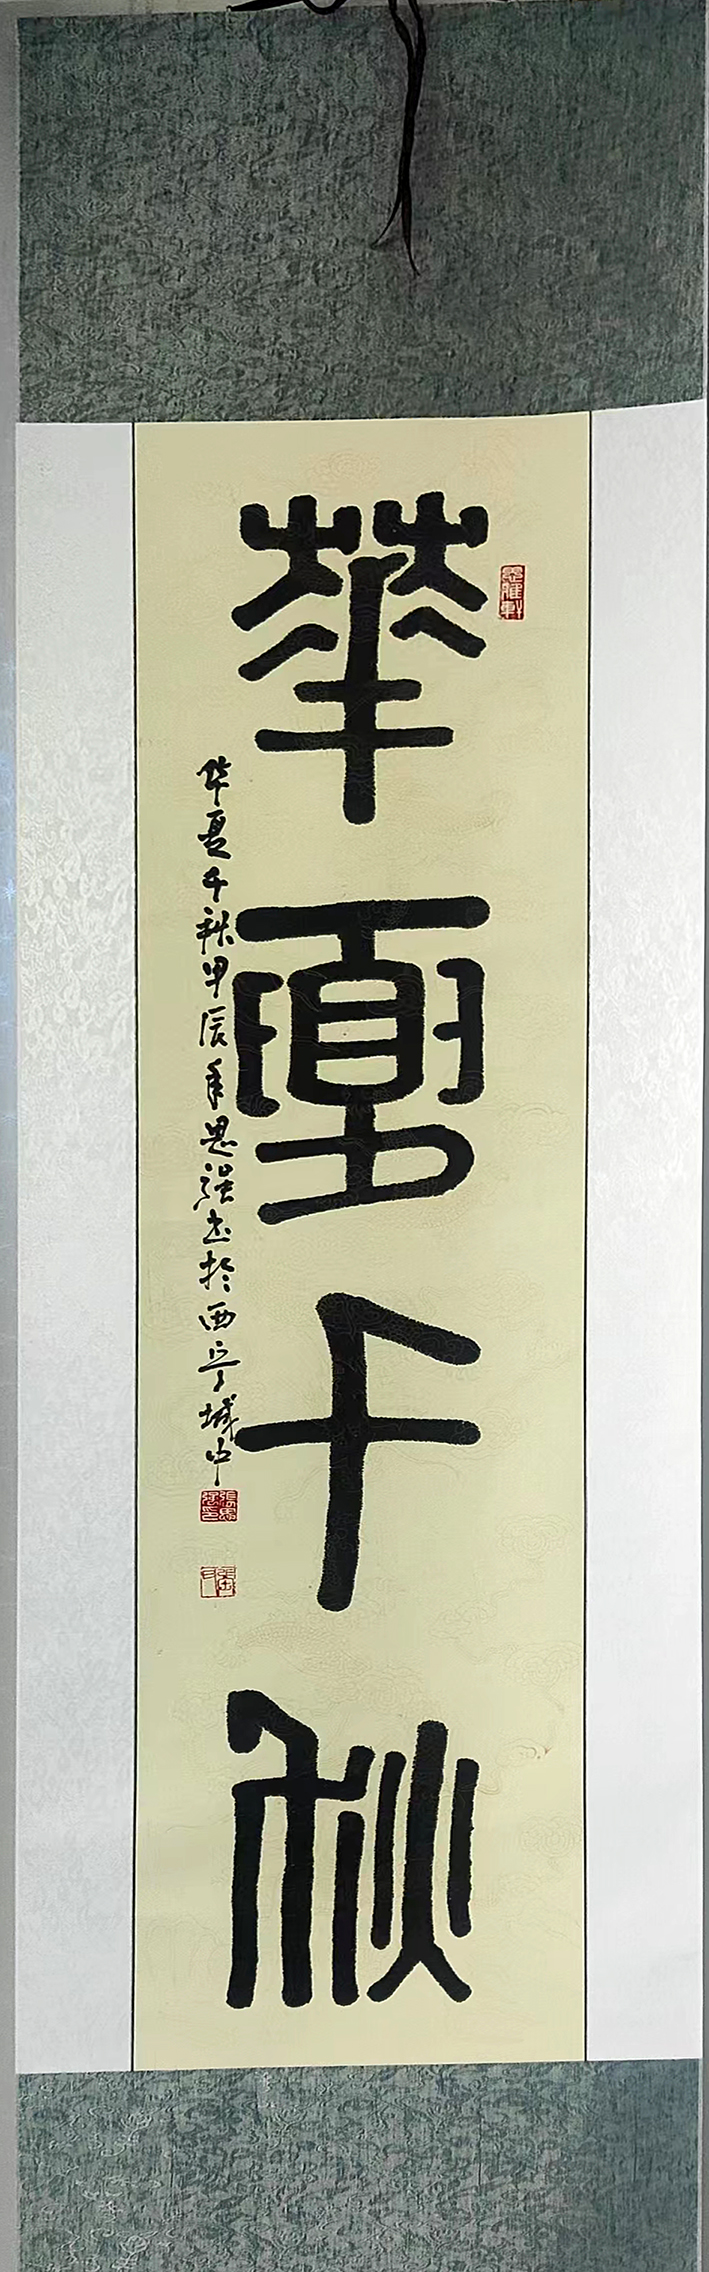 華夏千秋
华夏千秋甲辰年思强书於西宁城中